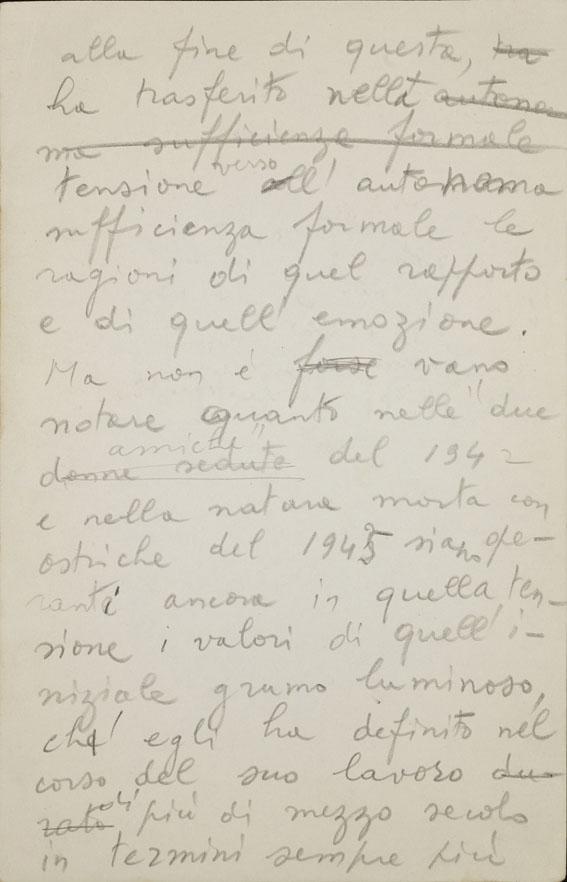 alla fine di questa, ha
ha trasferito nella autono
ma sufficienza formale
verso
tensione all' autonoma
sufficienza formale le
ragioni di quel rapporto
e di quell' emozione.
Ma non è forse vano
notare quanto nelle "due
amiche"
donne sedute del 194
e nella natura morta con
ostriche del 194 siano ope-
ranti ancora in quella ten-
sione i valori di quell' i-
niziale grumo luminoso,
ché egli ha definito nel
corso del suo lavoro du-
di
rato più di mezzo secolo
in termini sempre più